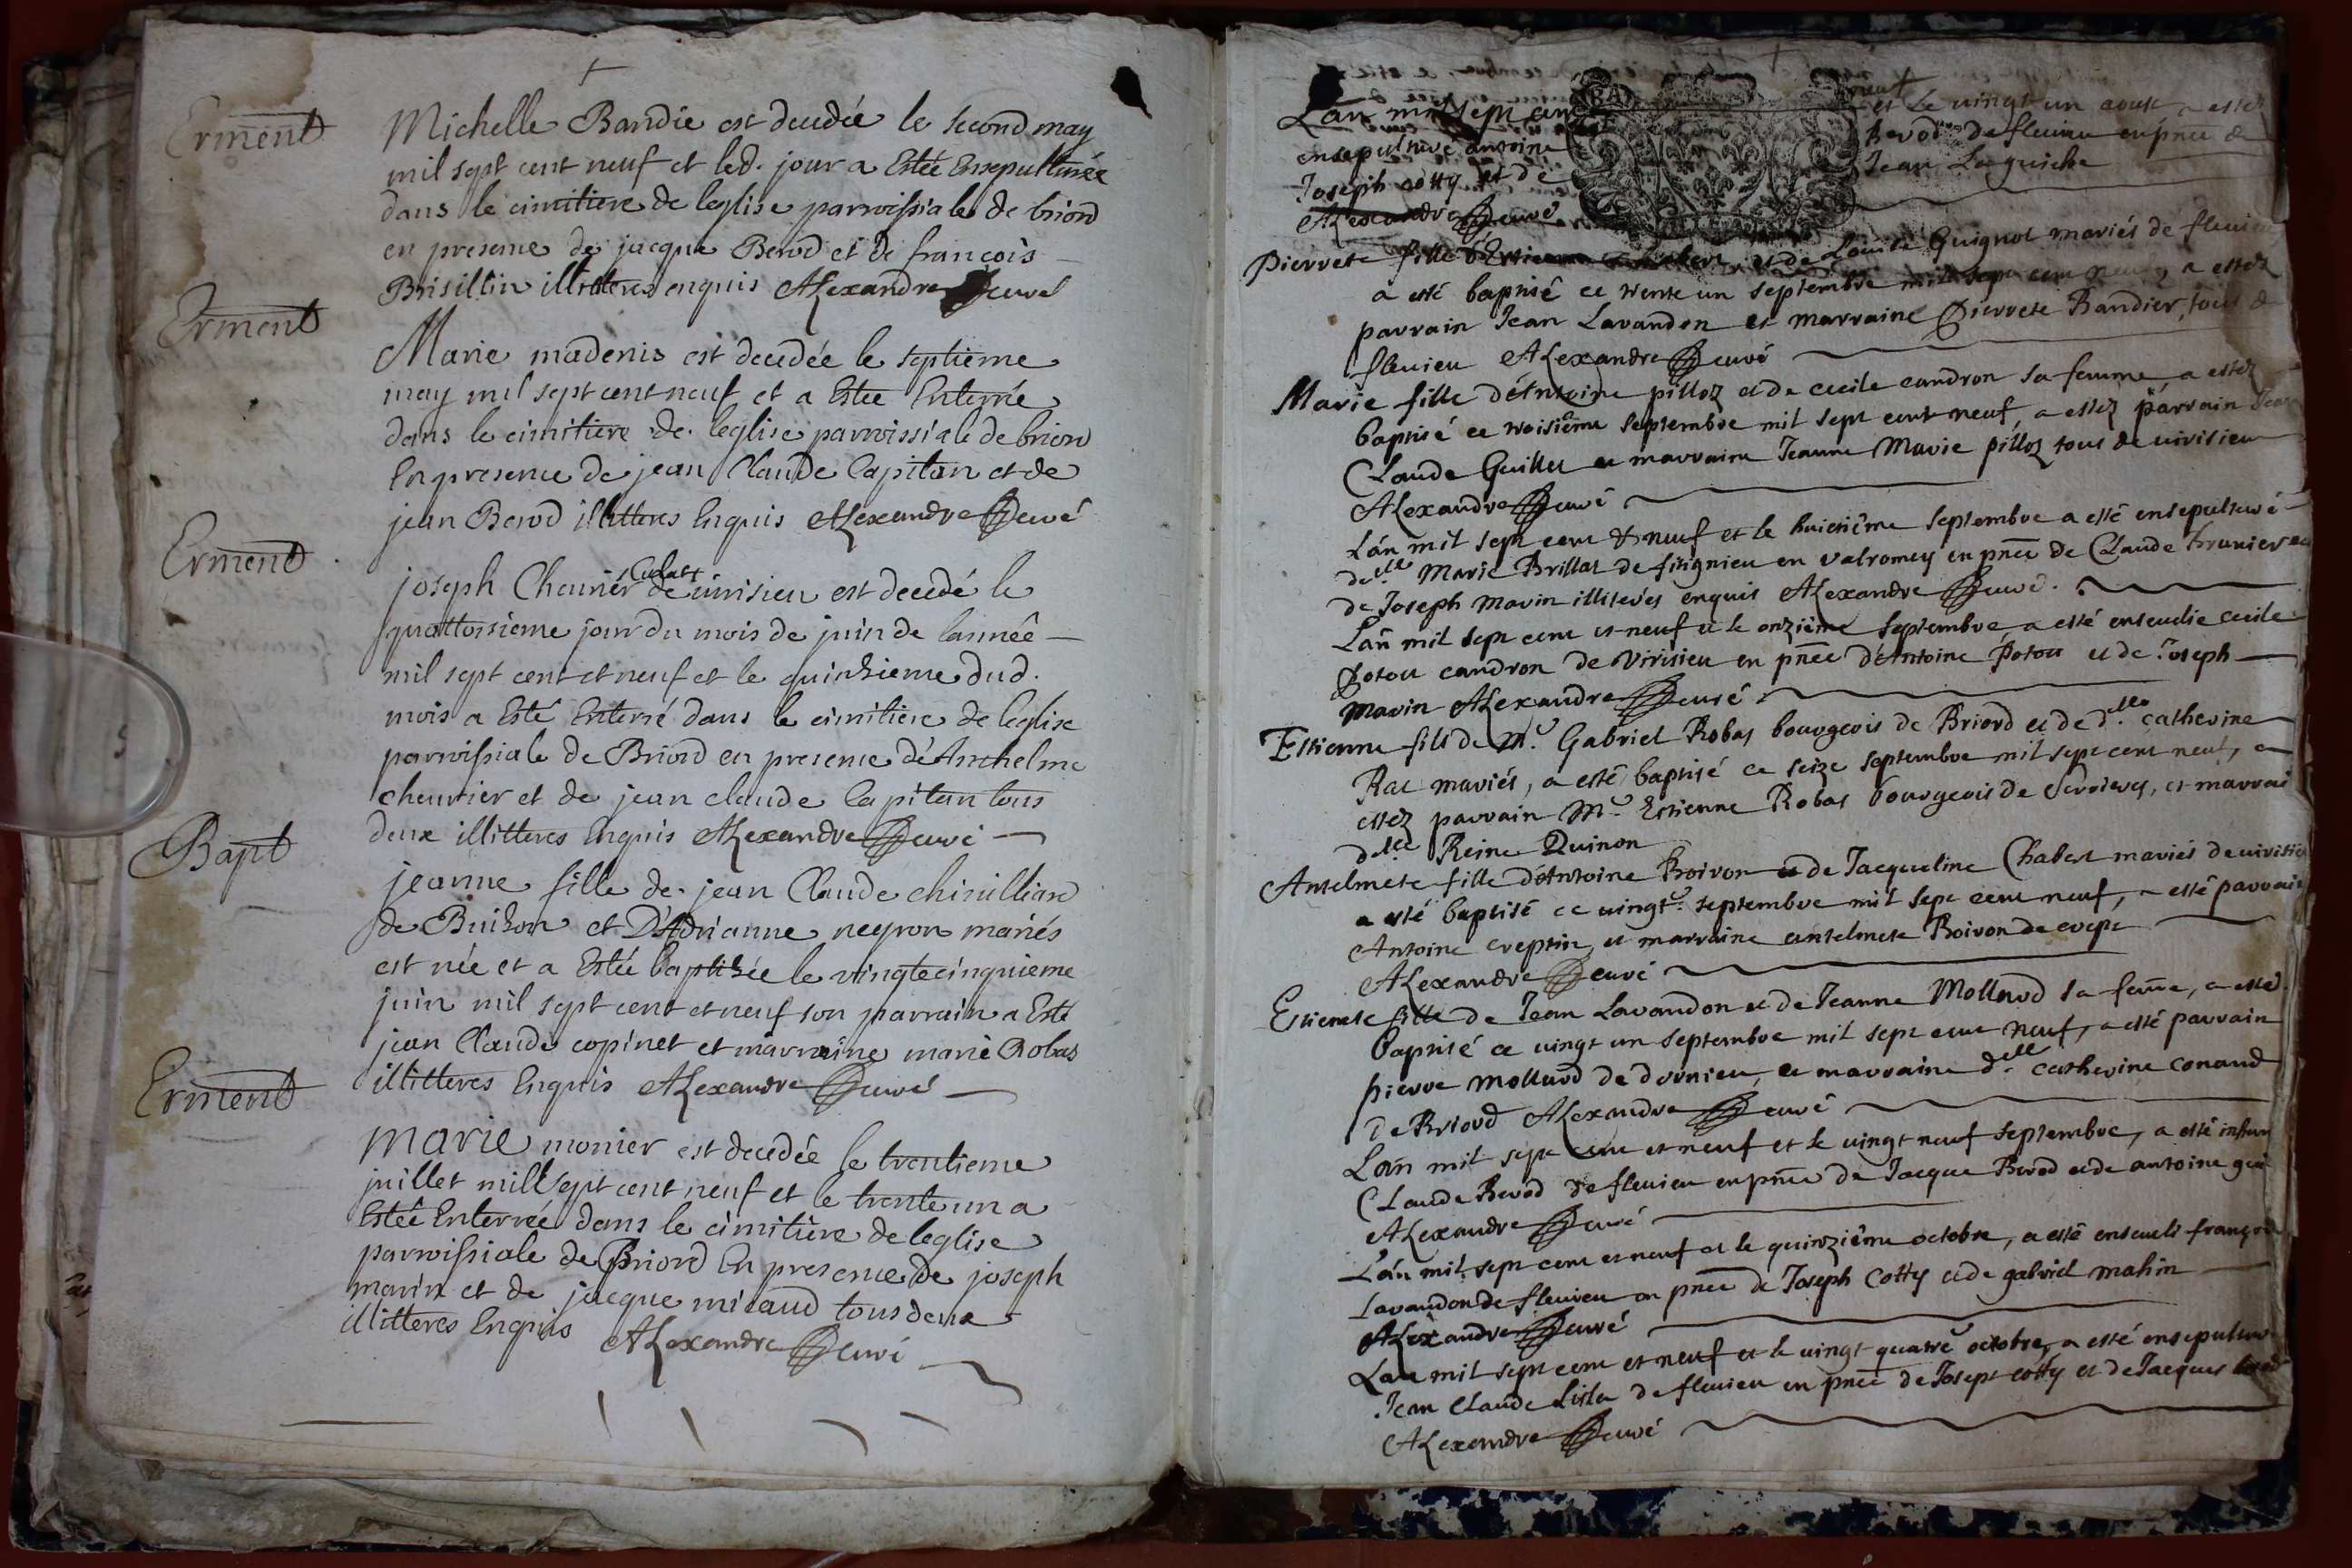 Erment
Michelle Bandie est decedée le second may
mil sept cent neuf et led. jour a Estée Ensepulturée
dans le cimitiere de leglise parroissiale de briord
en presence de jacque Berod et de françois
Brisillin illitteres enquis Alexandre curé
Erment
Marie madenis est decedée le septieme
may mil sept cent neuf et a Estee Enterrée
dans le cimitiere de leglise parroissiale de briord
En presence de jean Claude Capitan et de
jean Berod illitteres Enquis Alexandre curé
Erment
joseph Cheurier de uirisieu est decedé le
quattorsieme jour du mois de juin de lannée
mil sept cent et neuf et le quinzieme dud.
mois a Esté Enterré dans le cimitiere de leglise
parroissiale de Briord en presence d'Anthelme
cheurier et de jean claude Capitan tous
deux illitteres Enquis Alexandre curé
Bapt
jeanne fille de jean Claude chinilliard
de Buison et D'Adrianne neyron mariés
est née et a Estée baptisée le vingtecinquieme
juin mil sept cent et neuf son parrain a Esté
jean Claude copinet et marraine marie Robas
illitteres Enquis Alexandre curé
Erment
Marie monier est decedée le trentieme
juillet mill sept cent neuf et le trente un a
Estée Enterrée dans le cimitiere de leglise
parroissiale de Briord En presence de joseph
marin et de jacque micaud tous deux
illitteres Enquis Alexandre curé
Lan mil sept cent et le vingt un aoust a estez
ensepulturé antoine Berod de fleurieu en pnce &
Joseph cotty et de Jean Laguiche
Alexandre curé
Pierrete fille d'Estienne et de Louise Guignot mariés de fleurieu
a esté baptisé ce trente un septembre mil sept cent neuf, a estez
parrain Jean Lavandon et marraine Pierrete Bandier, tous &
fleurieu Alexandre curé
Marie fille d'Antoine pilloz et de cecile candron sa femme, a estez
baptisé ce troisieme septembre mil sept cent neuf, a estez parrain Jean
Claude Guillet et marraine Jeanne Marie pilloz tous de uirisieu
Alexandre curé
L'an mil sept cent & neuf et le huictième septembre a esté ensepulturé
delle Marie Brillat de fitignieu en valromey en pnce de Claude brunier et
de Joseph Marin illiterés enquis Alexandre curé.
Lan mil sept cent et neuf et le onzième septembre a esté enseuelie cecile
potou candron de Virisieu en pnce d'Antoine Potou et de Joseph
Marin Alexandre curé
Estienne fils de Mr. Gabriel Robas bourgeois de Briord et de dlle catherine
Rac mariés, a esté baptisé ce seize septembre mil sept cent neuf, a
estez parrain Mr. Estienne Robas bourgeois de Serrieres, et marrai
dlle Reine Quinon
Antelmete fille d'Antoine Boiron et de Jacqueline Chabert mariés de uirisieu
a esté baptisé ce uingt septembre mil sept cent neuf, a esté parrain
Antoine creptin, et marraine antelmete Boiron de crept
Alexandre curé
Estienete fille de Jean Lavandon et de Jeanne Mollard sa feme, a esté
baptisé ce uingt un septembre mil sept cent neuf, a esté parrain
pierre mollard de dornieu, et marraine dlle catherine conand
de Briord Alexandre curé
L'an mil sept cent et neuf et le uingt neuf septembre, a esté
Claude Berod de fleurieu en pnce de Jacque Berod et de antoine
Alexandre curé
L'an mil sept cent et neuf et le quinzième octobre, a esté enseueli
Lavandon de fleurieu en pnce de Joseph Cotty et de gabriel mahin
Alexandre curé
Lan mil sept cent et neuf et le uingt quatre octobre, a esté
Jean Claude de fleurieu en pnce de Joseph cotty et de Jacques
Alexandre curé